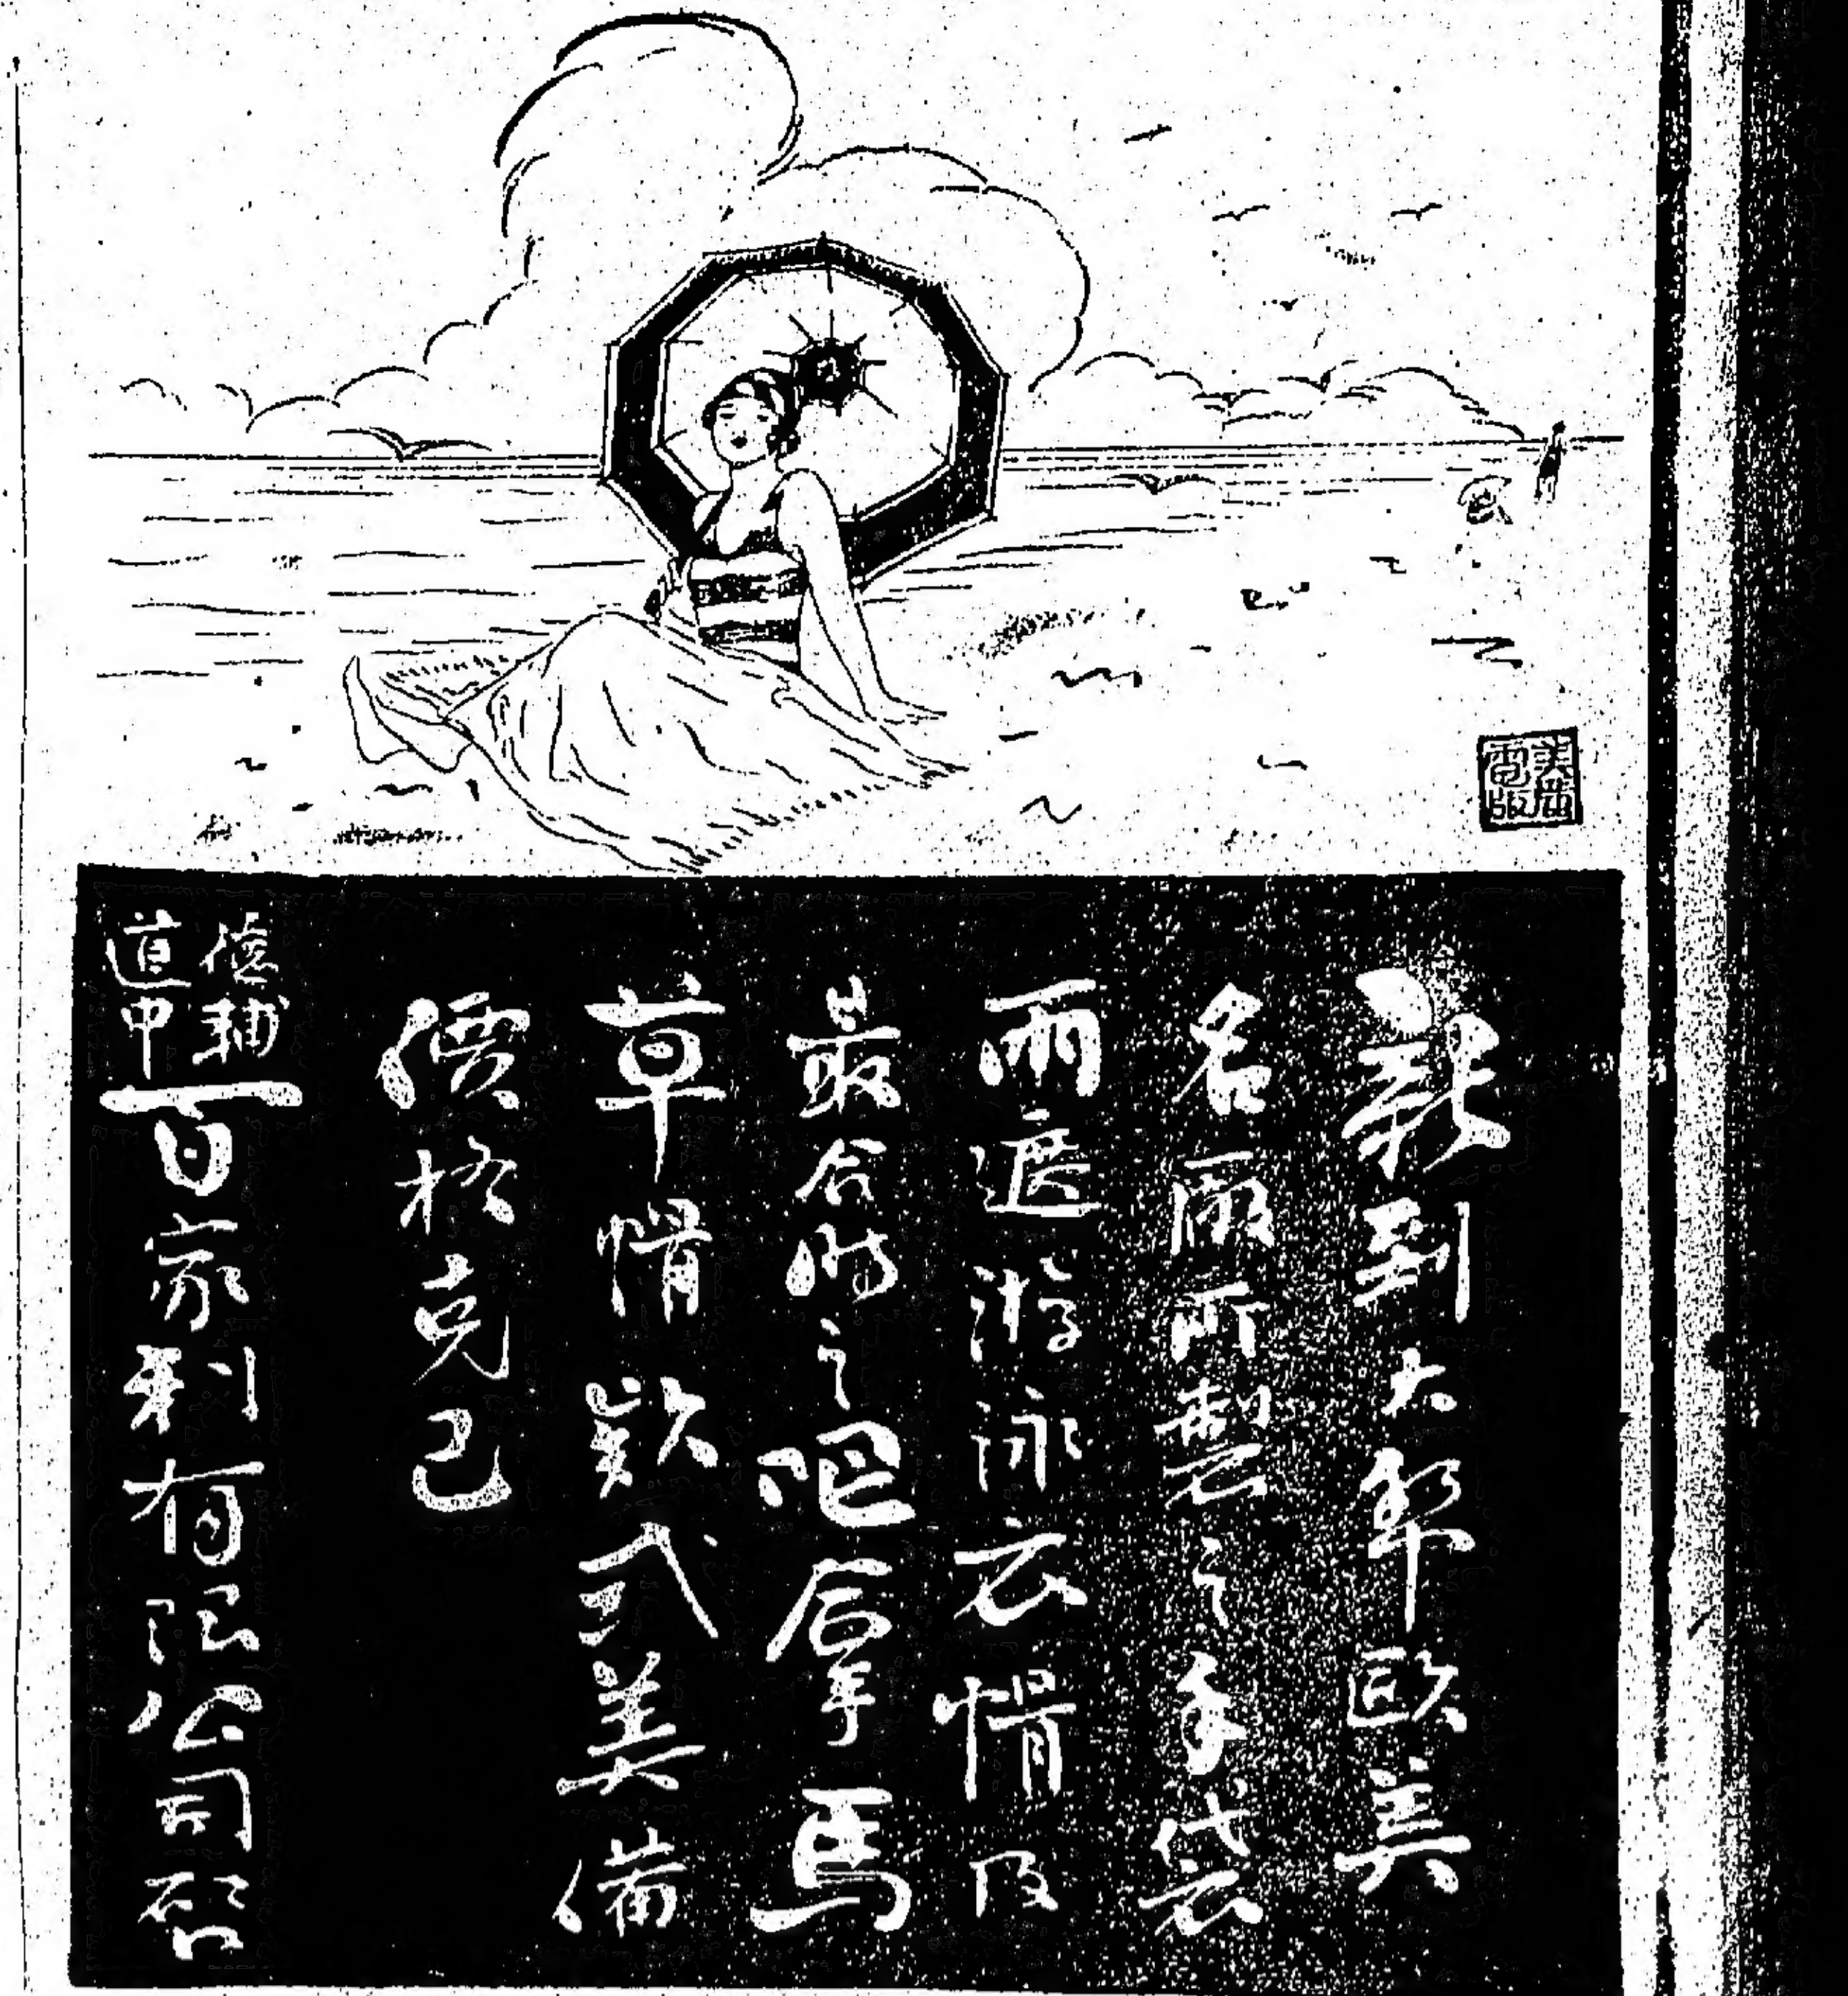 新到大帮歐美
名廠所製之手袋
雨遮游泳衣帽及
最合時之吧拿馬
草帽欵式美備
價格克己
德輔道中
百家利有限公司啓